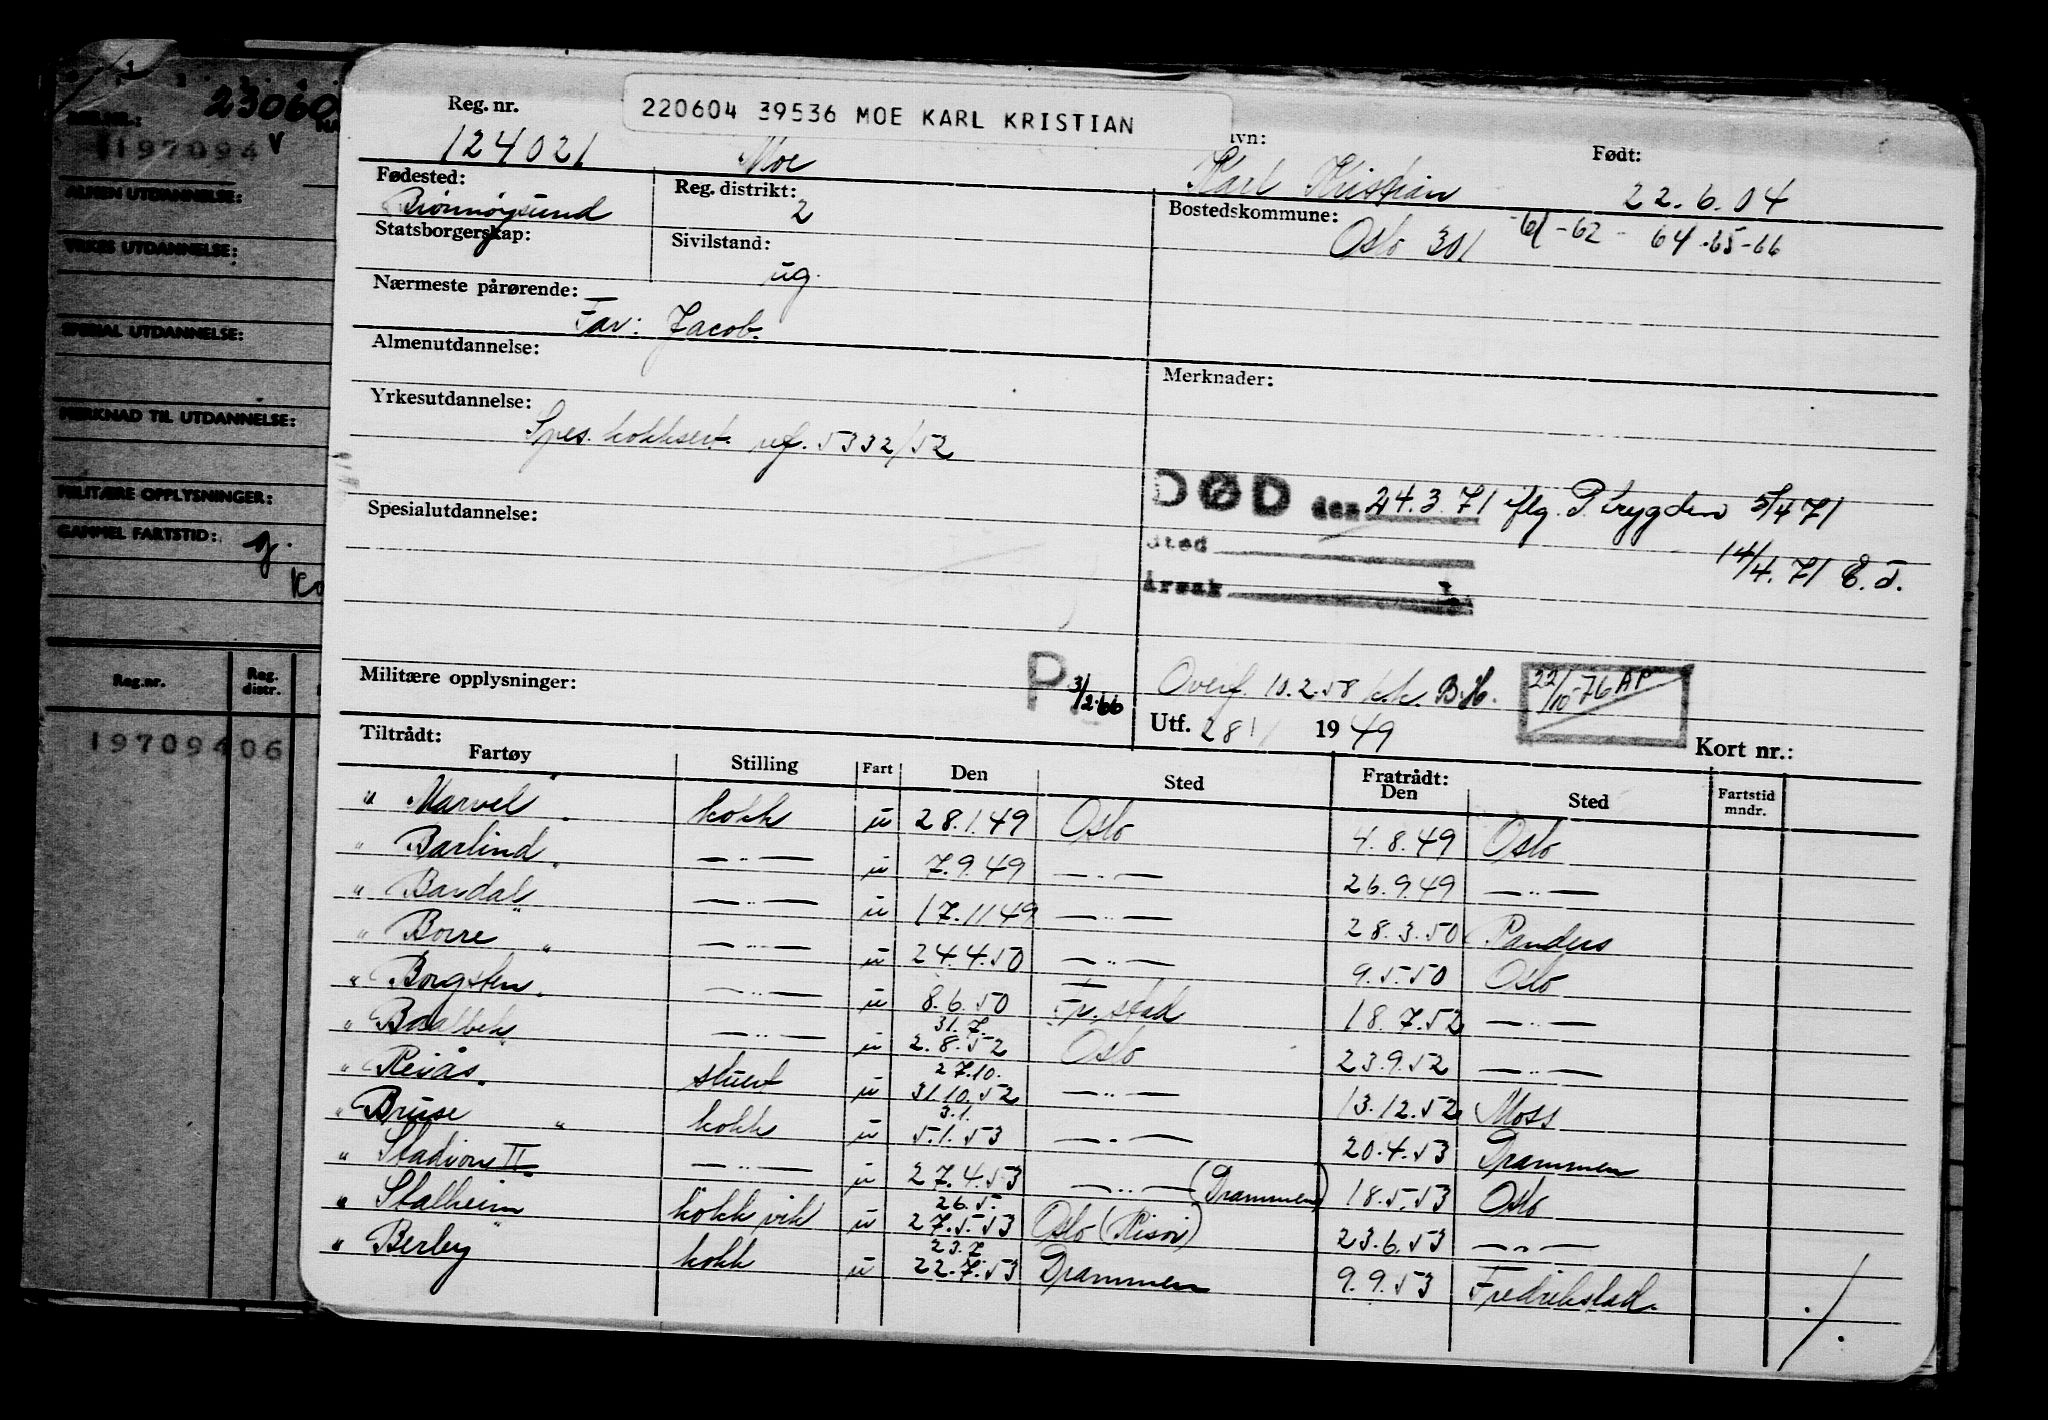 220604 39536 MOE KARL KRISTIAN
Reg. nr. 124021
Moe
Karl Kristian
Født: 22.6.04
Fødested: Brønnøysund
Reg. distrikt: 2
Bostedskommune: Oslo 301 -61-62-64-65-66
Statsborgerskap:
Sivilstand: ug.
Nærmeste pårørende: Far: Jacob.
Almenutdannelse:
Merknader:
Yrkesutdannelse: Spes. kokksert. ref. 5332/52
DØD den 24.3.71 iflg. P.trygden 5/4 71
14/4.71 E.J.
Sted
Årsak
Spesialutdannelse:
Militære opplysninger:
P 3/2.66
Overf. 10.2.58 k.k. B.H.
22/10-76 AP
Utf. 28/1 1949
Kort nr.:
Tiltrådt:
Fratrådt:
Fartøy Stilling Fart Den Sted Den Sted Fartstid mndr.
" Marvel " kokk u 28.1.49 Oslo 4.8.49 Oslo
" Barlind " —"— u 7.9.49 —"— 26.9.49 —"—
" Bardal " —"— u 17.11.49 —"— 28.3.50 Randers
" Borre " —"— u 24.4.50 —"— 9.5.50 Oslo
" Borgsten " —"— u 8.6.50 Fr.stad 18.7.52 —"—
" Baalbek " —"— u 31.7. 2.8.52 Oslo 23.9.52 —"—
" Reiås " stuert u 27.10. 31.10.52 —"— 13.12.52 Moss
" Bruse " kokk u 3.1. 5.1.53 —"— 20.4.53 Drammen
" Stadion II —"— u 27.4.53 —"— (Drammen) 18.5.53 Oslo
" Stalheim kokk vik u 26.5. 27.5.53 Oslo (Risør) 23.6.53 —"—
" Berby " kokk u 23.7 22.7.53 Drammen 9.9.53 Fredrikstad
./.
23060
197094 v
ALMEN UTDANNELSE:
YRKES UTDANNELSE:
SPESIAL UTDANNELSE:
MERKNAD TIL UTDANNELSE:
MILITÆRE OPPLYSNINGER:
GAMMEL FARTSTID: g.
Reg.nr. Reg. distr.
197094 06